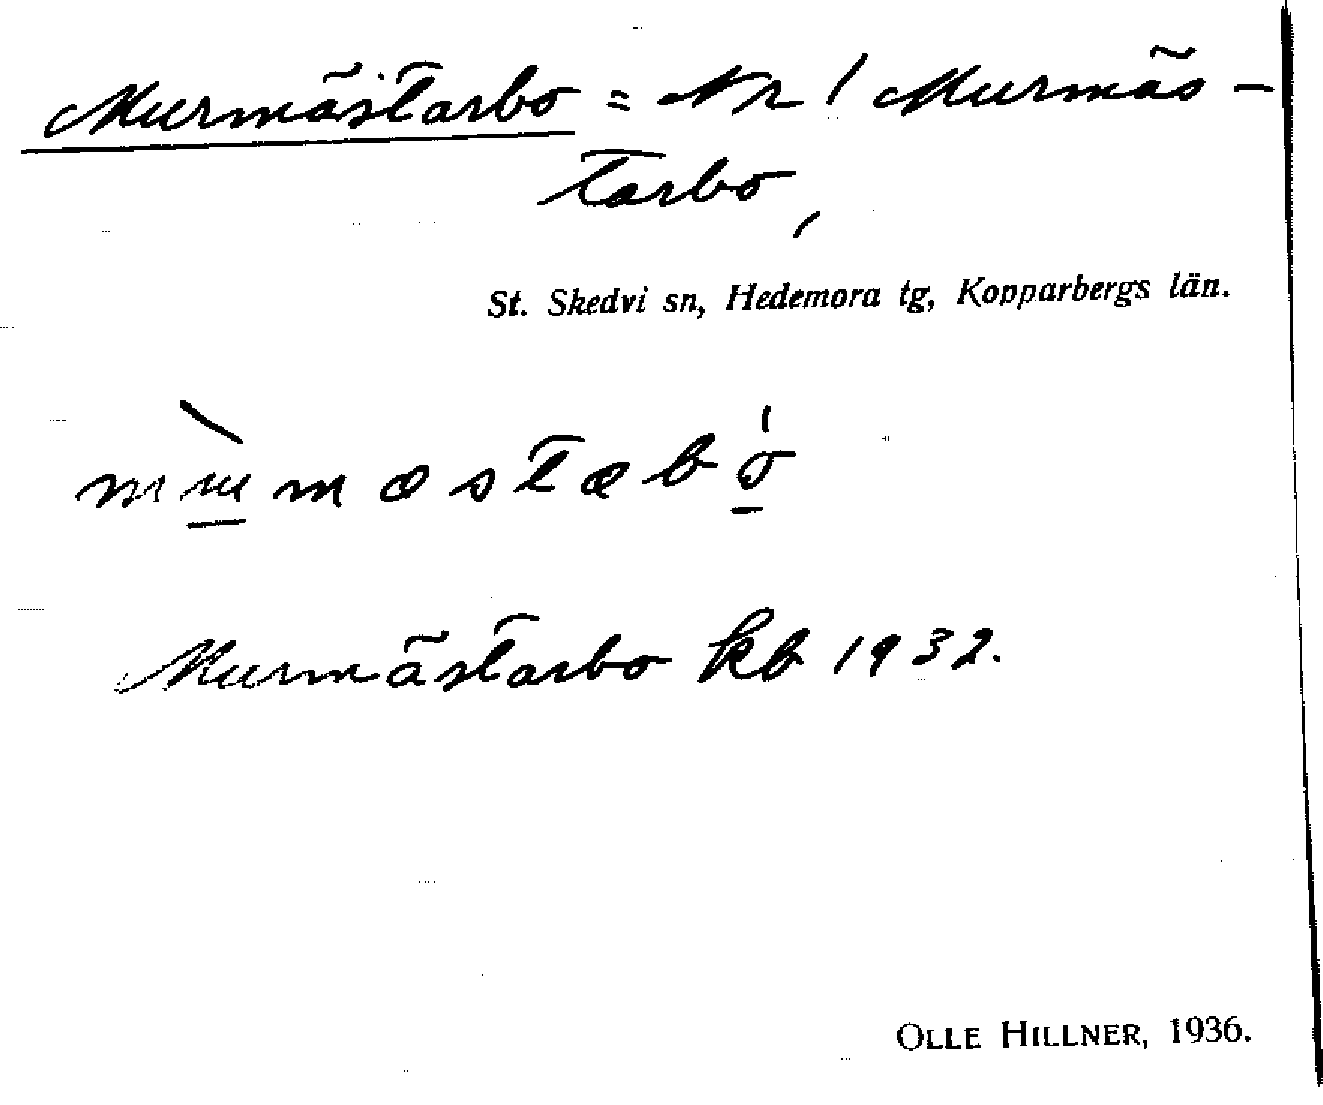 Murmästarbo = Nr 1 Murmäs-
tarbo,
St. Skedvi sn, Hedemora tg, Kopparbergs län.
Murmästarbo kb 1932.
OLLE HILLNER, 1936.